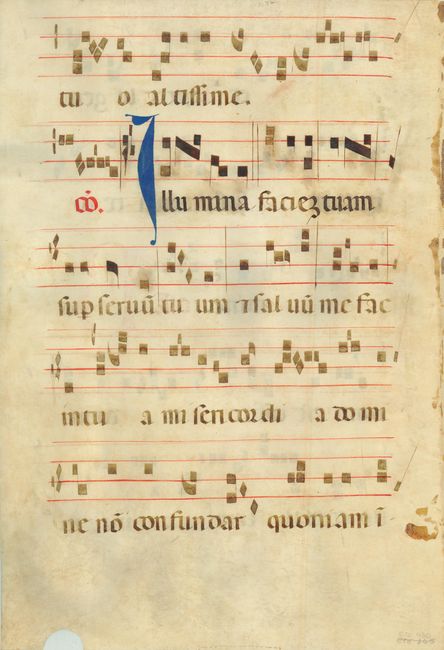 tu o altissime.
cō. Illu mina faciez tuam
sup seruū tu um ⁊ sal uū me fac
in tu a mi seri cor di a do mi
ne nō con fun dar quoni am ī